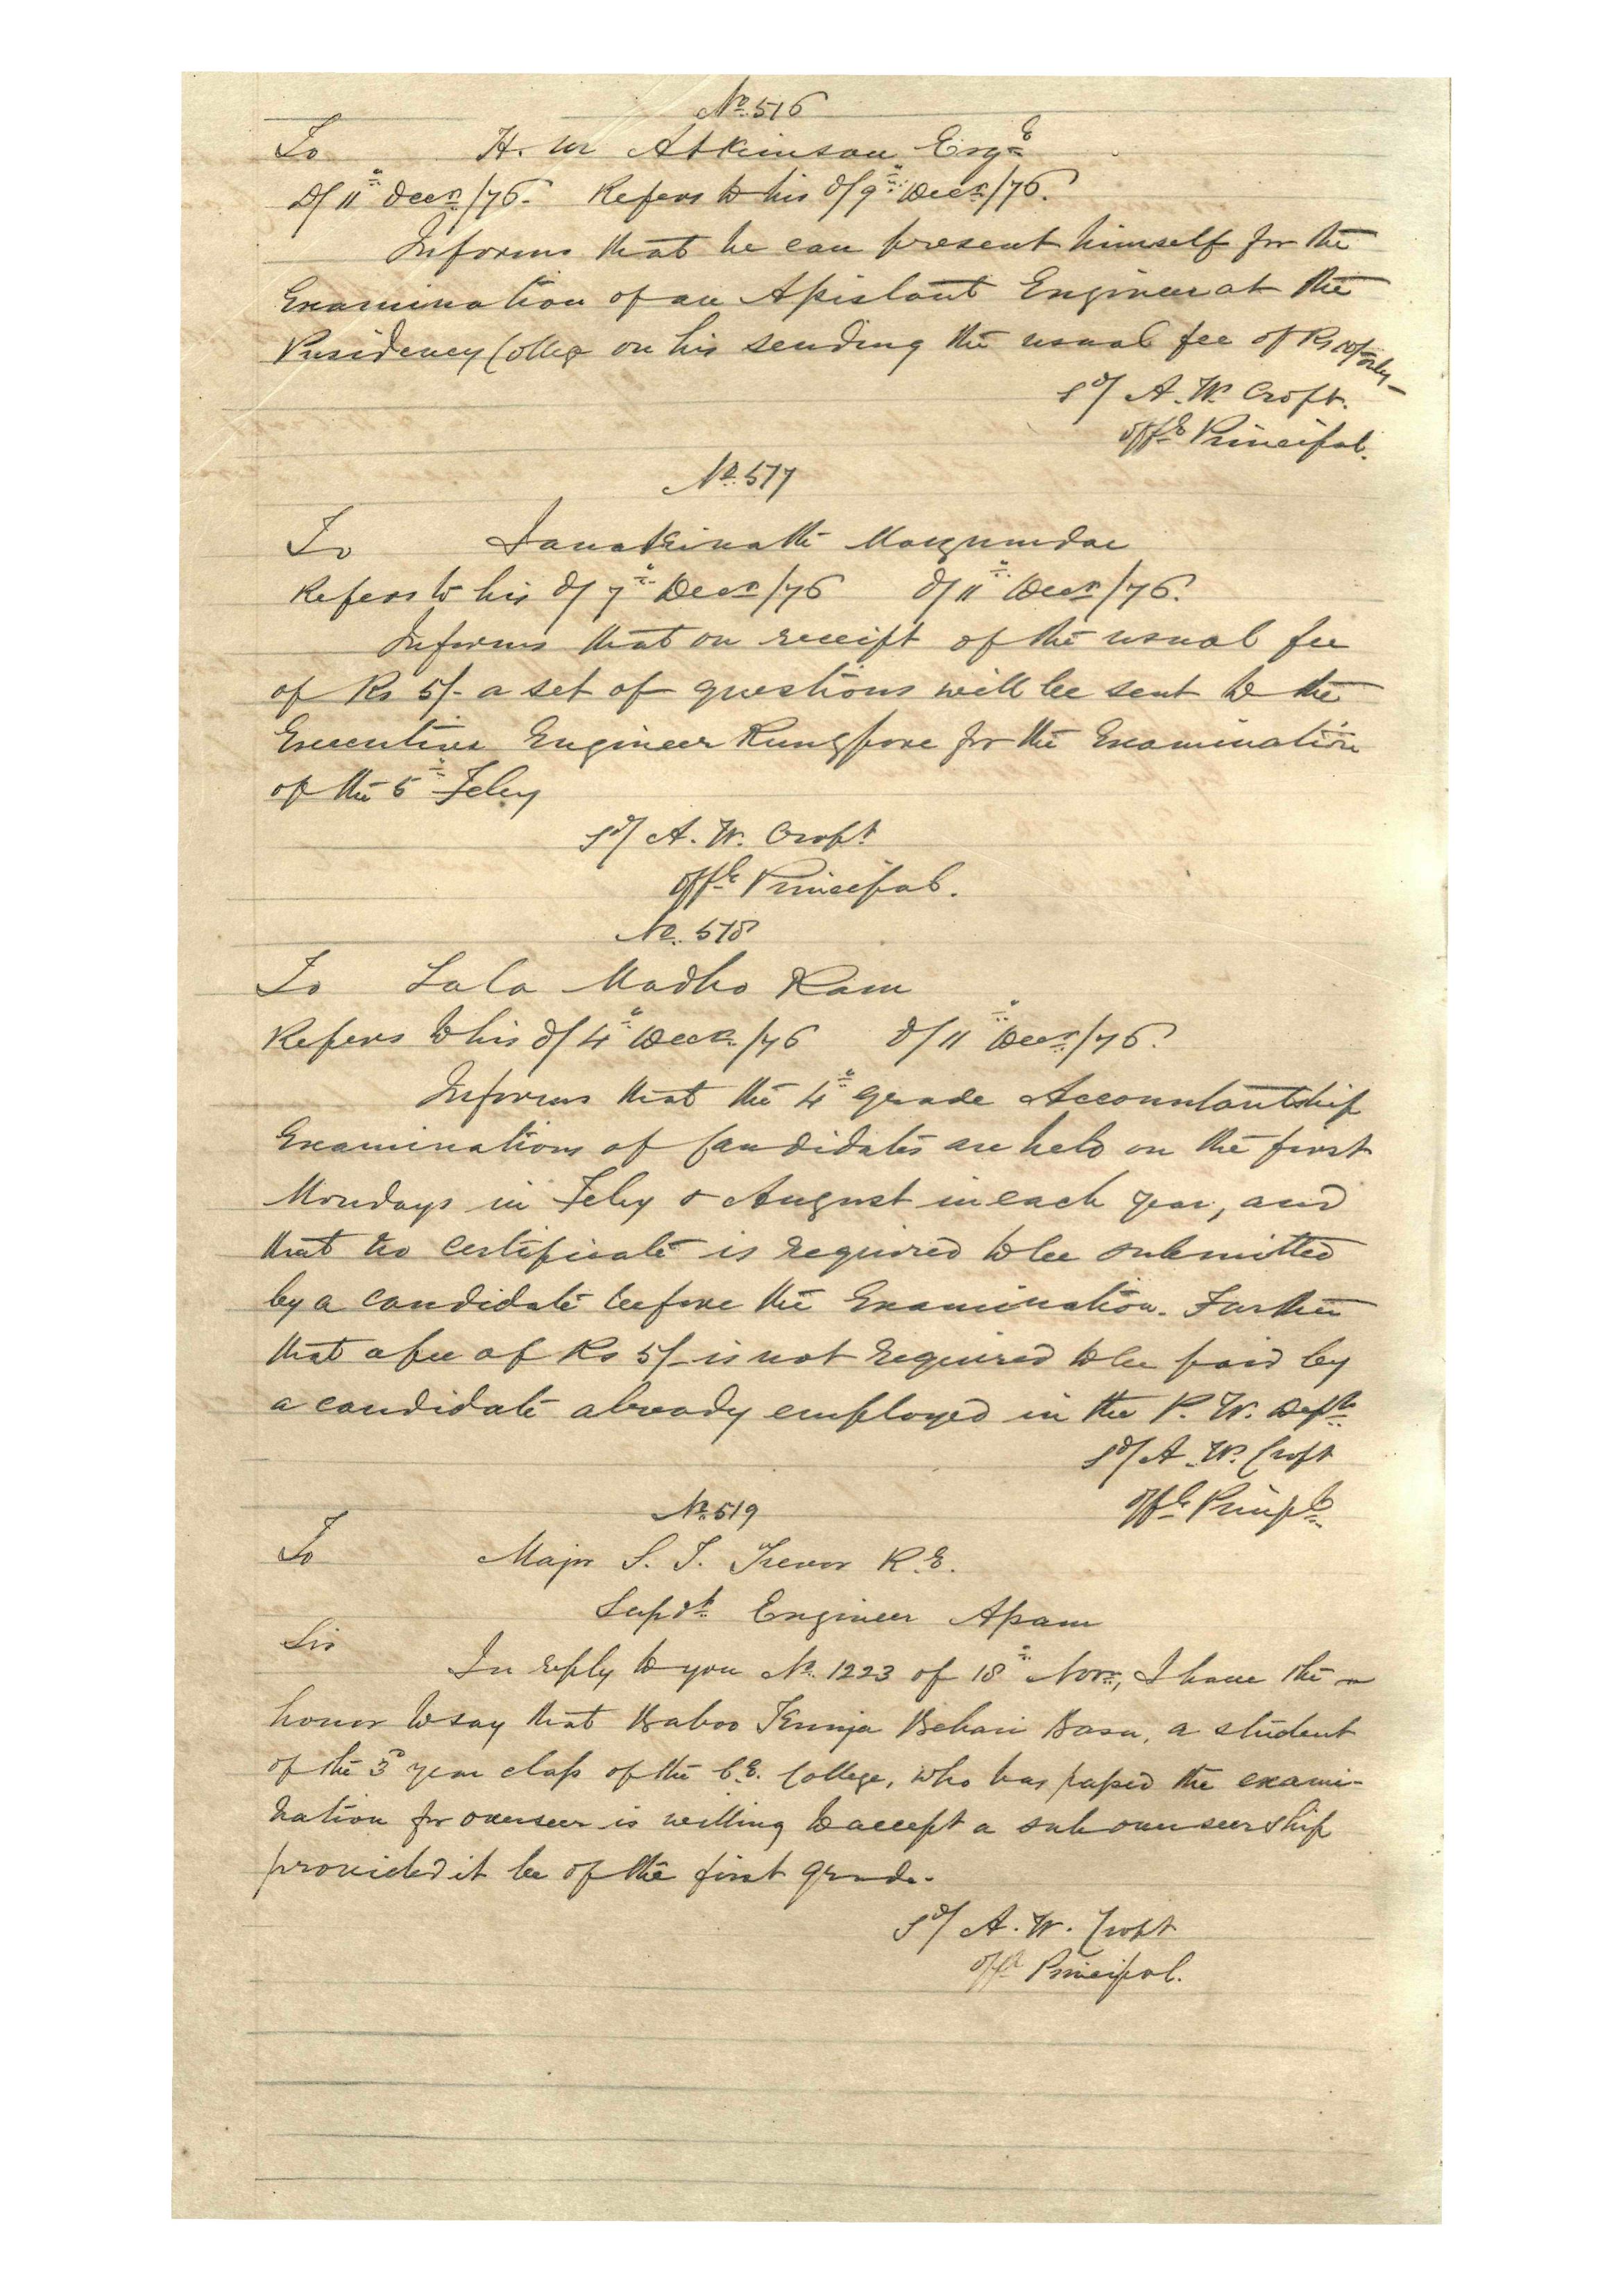 No. 516
To H. W Atkinson Esqre
D/ 11th Decr/76. Refers to his d/ 9th Decr/76.
Informs that he can present himself for the
Examination of an Assistant Engineer at the
Presidency College on his sending the usual fee of Rs only
Sd/ A. W. Croft.
Offg Principal.
No. 517
To Janakinath Mozumdar
Refers to his d/ 7th Decr/76 d/ 11th Decr/76.
Informs that on receipt of the usual fee
of Rs 5/- a set of questions will be sent to the
Executive Engineer Rungpore for the Examination
of the 5th Feby
Sd/ A. W. Croft
Offg Principal.
No. 518
To Lala Madho Ram
Refers to his d/ 4th Decr./76 d/ 11th Decr/76.
Informs that the 4th grade Accountantship
Examinations of Candidates are held on the first
Mondays in Feby & August in each year, and
that no certificate is required to be submitted
by a candidate before the Examination. Further
that a fee of Rs 5/- is not required to be paid by
a candidate already employed in the P. W. Dept
Sd/ A. W. Croft
Offg Prinpl
No. 519
To Major S. T. Trevor R.E.
Supdt. Engineer Assam
Sir
In reply to you No. 1223 of 18th Novr, I have the
honor to say that Baboo Kunja Behari Basu, a student
of the 3d year class of the C.E. College, who has passed the exami-
nation for overseer is willing to accept a sub overseership
provided it be of the first grade.
Sd/ A. W. Croft
Offg Principal.